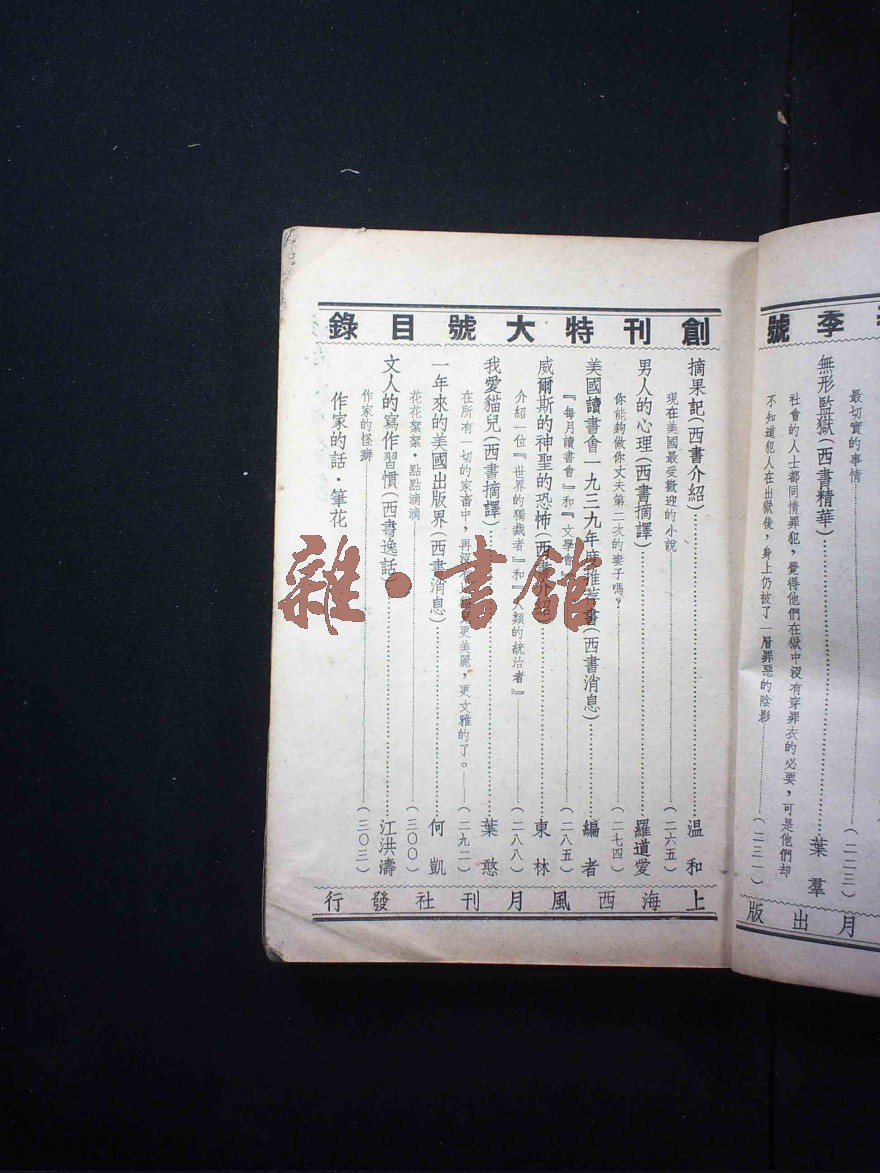 季號
最切實的事情……(二二三)
無形監獄(西書精華)……葉羣
社會的人士都同情罪犯,覺得他們在獄中沒有穿罪衣的必要,可是他們却
不知道犯人在出獄後,身上仍被了一層罪惡的陰影……(二三一)
月出版
創刊特大號目錄
摘果記(西書介紹)……温和
現在美國最受歡迎的小說……(二六五)
男人的心理(西書摘譯)……羅道愛
你能夠做你丈夫第二次的妻子嗎?……(二七四)
美國讀書會一九三九年度推荐書(西書消息)……編者
『每月讀書會』和『文學會』……(二八五)
威爾斯的神聖的恐怖(西書介紹)……東林
介紹一位『世界的獨裁者』和『人類的統治者』……(二八八)
我愛貓兒(西書摘譯)……葉憨
在所有一切的家畜中,再沒有更美麗,更文雅的了。……(二九二)
一年來的美國出版界(西書消息)……何凱
花花絮絮·點點滴滴……(三〇〇)
文人的寫作習慣(西書逸話)……江洪濤
作家的怪癖……(三〇三)
作家的話·筆花
上海西風月刊社發行
雜·書館